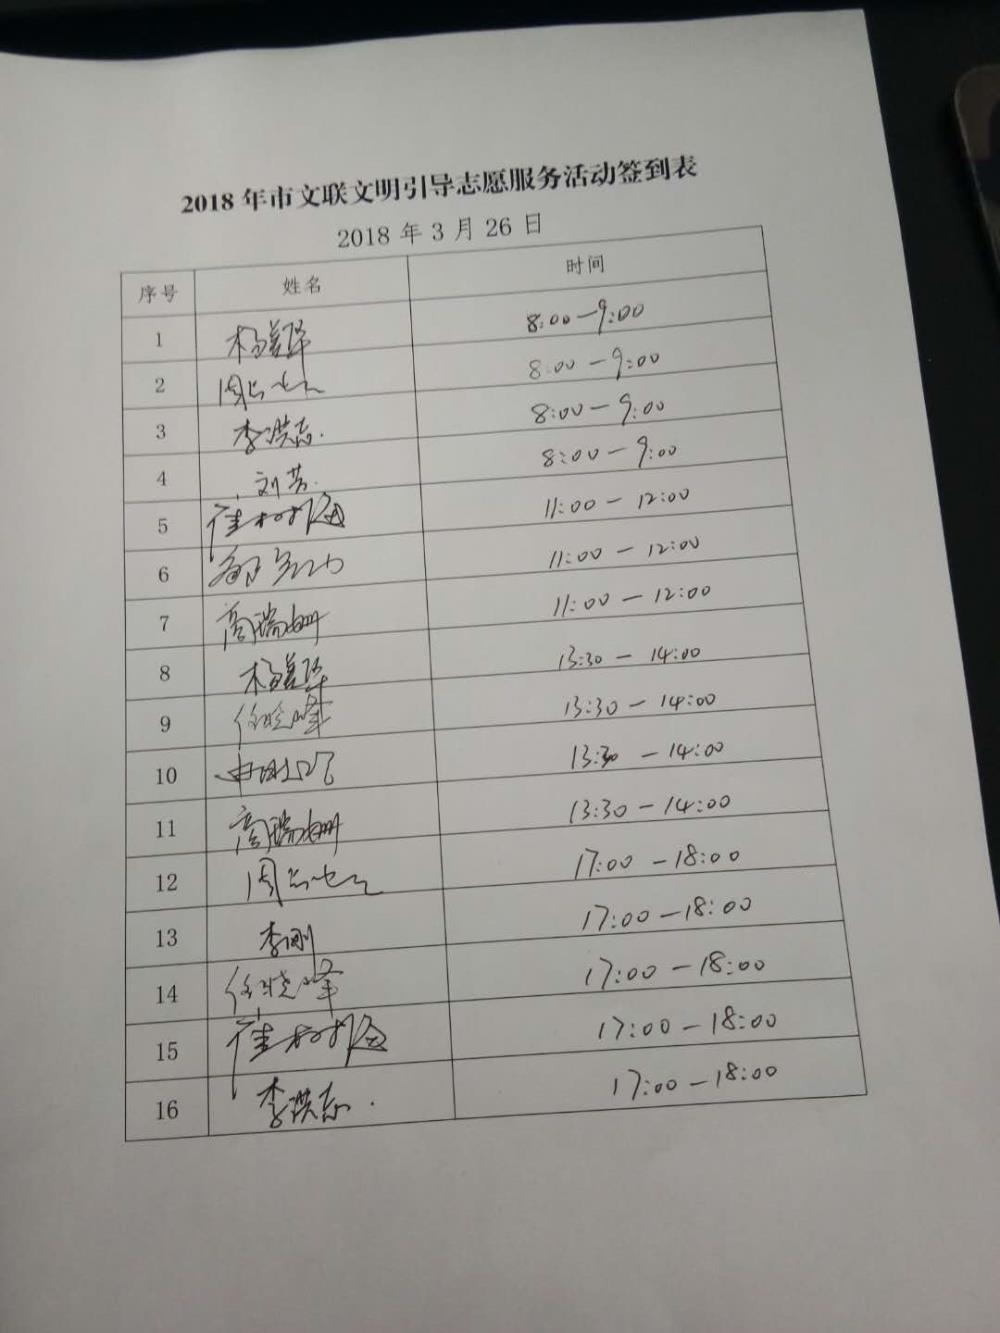 2018年市文联文明引导志愿服务活动签到表
2018 年 3 月 26 日
序号 姓名 时间
1 8:00-9:00
2 8:00-9:00
3 李洪志. 8:00-9:00
4 刘芳. 8:00-9:00
5 11:00-12:00
6 11:00-12:00
7 高瑞姗 11:00-12:00
8 13:30-14:00
9 任晓峰 13:30-14:00
10 13:30-14:00
11 高瑞姗 13:30-14:00
12 17:00-18:00
13 李刚 17:00-18:00
14 任晓峰 17:00-18:00
15 17:00-18:00
16 李洪志. 17:00-18:00